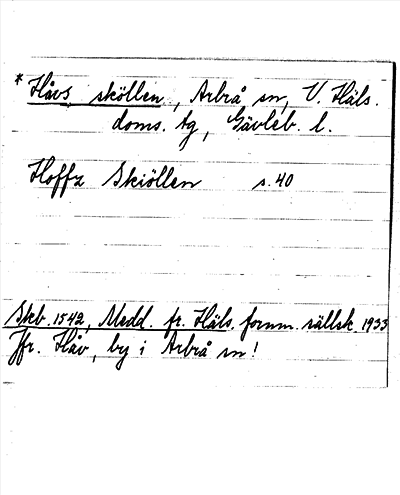 * Håvs sköllen, Arbrå sn, V. Häls.
doms. tg, Gävleb. l.
Hoffz Skiöllen s. 40
Skb. 1542, Medd. fr. Häls. fornm. sällsk. 1933
Jfr. Håv, by i Arbrå sn!